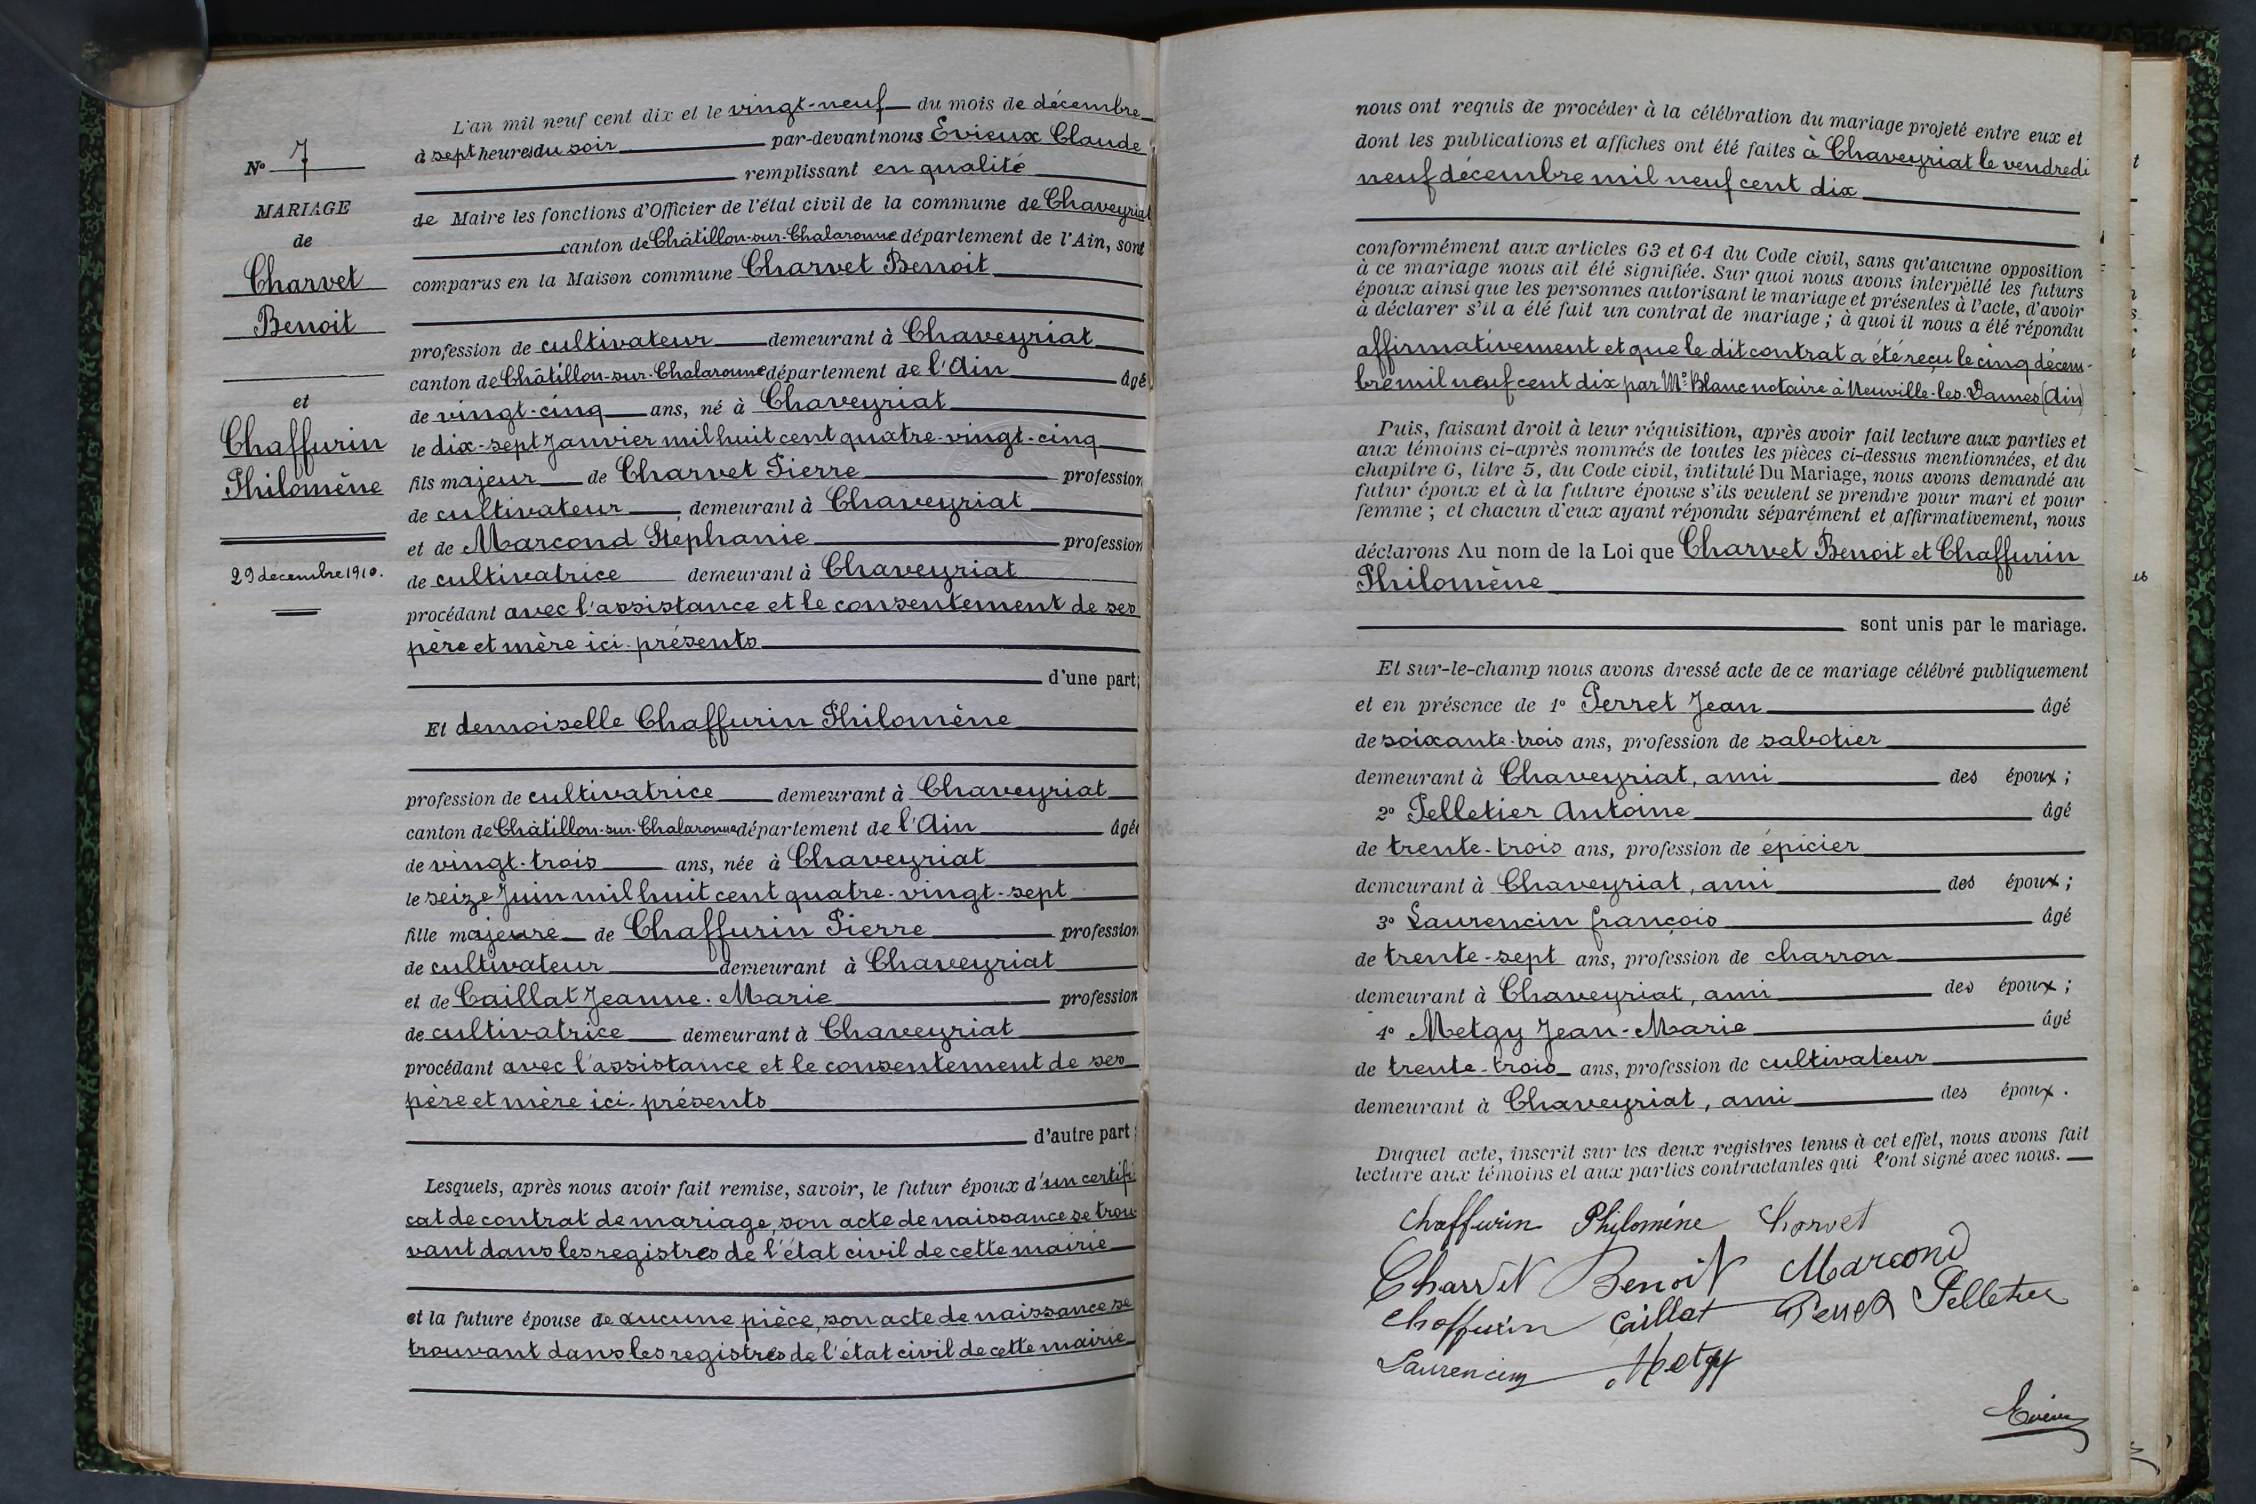 N° 7
MARIAGE
de
Charvet
Benoit
et
Chaffurin
Philomène
29 décembre 1910.
L'an mil neuf cent dix et le vingt-neuf du mois de décembre
à sept heures du soir par-devant nous Evieux Claude
remplissant en qualité
de Maire les fonctions d'Officier de l'état civil de la commune de Chaveyriat
canton de Châtillon-sur-Chalaronne département de l'Ain, sont
comparus en la Maison commune Charvet Benoit
profession de cultivateur demeurant à Chaveyriat
canton de Châtillon-sur-Chalaronne département de l'Ain âgé
de vingt-cinq ans, né à Chaveyriat
le dix-sept Janvier mil huit cent quatre-vingt-cinq
fils majeur de Charvet Pierre profession
de cultivateur, demeurant à Chaveyriat
et de Marcond Stephanie profession
de cultivatrice demeurant à Chaveyriat
procédant avec l'assistance et le consentement de ses
père et mère ici-présents
d'une part;
Et demoiselle Chaffurin Philomène
profession de cultivatrice demeurant à Chaveyriat
canton de Châtillon-sur-Chalaronne département de l'Ain âgée
de vingt-trois ans, née à Chaveyriat
le seize Juin mil huit cent quatre-vingt-sept
fille majeure de Chaffurin Pierre profession
de cultivateur demeurant à Chaveyriat
et de Caillat Jeanne-Marie profession
de cultivatrice demeurant à Chaveyriat
procédant avec l'assistance et le consentement de ses
père et mère ici-présents
d'autre part;
Lesquels, après nous avoir fait remise, savoir, le futur époux d'un certifi-
cat de contrat de mariage, son acte de naissance se trou-
vant dans les registres de l'état civil de cette mairie
et la future épouse de aucune pièce, son acte de naissance se
trouvant dans les registres de l'état civil de cette mairie
nous ont requis de procéder à la célébration du mariage projeté entre eux et
dont les publications et affiches ont été faites à Chaveyriat le vendredi
neuf décembre mil neuf cent dix
conformément aux articles 63 et 64 du Code civil, sans qu'aucune opposition
à ce mariage nous ait été signifiée. Sur quoi nous avons interpellé les futurs
époux ainsi que les personnes autorisant le mariage et présentes à l'acte, d'avoir
à déclarer s'il a été fait un contrat de mariage ; à quoi il nous a été répondu
affirmativement et que le dit contrat a été reçu le cinq décem-
bre mil neuf cent dix par Me Blanc notaire à Neuville-les-Dames (Ain)
Puis, faisant droit à leur réquisition, après avoir fait lecture aux parties et
aux témoins ci-après nommés de toutes les pièces ci-dessus mentionnées, et du
chapitre 6, titre 5, du Code civil, intitulé Du Mariage, nous avons demandé au
futur époux et à la future épouse s'ils veulent se prendre pour mari et pour
femme ; et chacun d'eux ayant répondu séparément et affirmativement, nous
déclarons Au nom de la Loi que Charvet Benoit et Chaffurin
Philomène
sont unis par le mariage.
Et sur-le-champ nous avons dressé acte de ce mariage célébré publiquement
et en présence de 1° Perret Jean âgé
de soixante-trois ans, profession de sabotier
demeurant à Chaveyriat, ami des époux ;
2° Pelletier Antoine âgé
de trente-trois ans, profession de épicier
demeurant à Chaveyriat, ami des époux ;
3° Laurencin françois âgé
de trente-sept ans, profession de charron
demeurant à Chaveyriat, ami des époux ;
4° Metgy Jean-Marie âgé
de trente-trois ans, profession de cultivateur
demeurant à Chaveyriat, ami des époux.
Duquel acte, inscrit sur les deux registres tenus à cet effet, nous avons fait
lecture aux témoins et aux parties contractantes qui l'ont signé avec nous.
Chaffurin Philoméne Charvet
Charvet Benoit Marcond
Chaffurin Caillat Perret Pelletier
Laurencin Metgy
Evieux